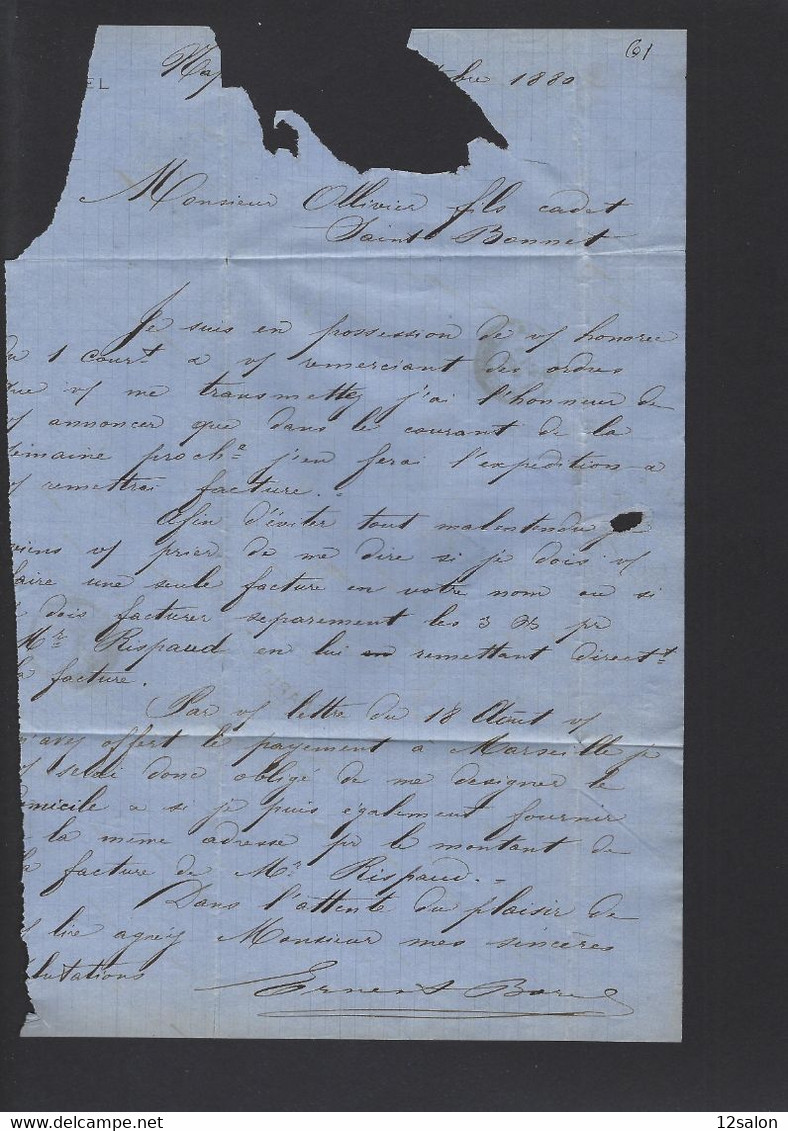 61
bre 1880
EL
Monsieur Ollivier fils cadet
Saint Bonnet
Je suis en possession de vs honoree
du 1 court & vs remerciant des ordres
que vs me transmettez j'ai l'honneur de
vs annoncer que dans le courant de la
semaine proche j'en ferai l'expedition &
vs remettrai facture.
Afin d'éviter tout malentendu je
viens vs prier de me dire si je dois vs
faire une seule facture en votre nom ou si
je dois facturer separement les 3 pr
Mr Rispaud en lui remettant directt
la facture.
Par vs lettre du 18 Août vs
m'avez offert le payement à Marseille je
vs serai donc obligé de me designer le
domicile & si je puis également fournir
à la même adresse pr le montant de
la facture de Mr Rispaud.
Dans l'attente du plaisir de
vs lire agréez Monsieur mes sincères
salutations
Ernest Borel
www.delcampe.net
12salon